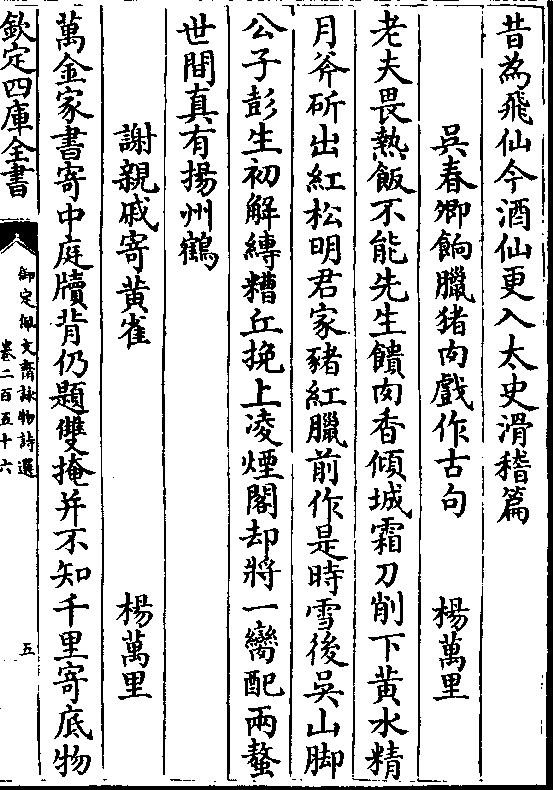 昔為飛仙今酒仙更入太史滑稽篇
吳春卿餉臘猪肉戲作古句 楊萬里
老夫畏熱飯不能先生饋肉香傾城霜刀削下黃水精
月斧斫出紅松明君家豬紅臘前作是時雪後吳山脚
公子彭生初解縛糟丘挽上凌煙閣却將一臠配兩螯
世間真有揚州鶴
謝親戚寄黃雀 楊萬里
萬金家書寄中庭牘背仍題雙掩并不知千里寄底物
欽定四庫全書
御定佩文齋詠物詩選
卷二百五十六
五